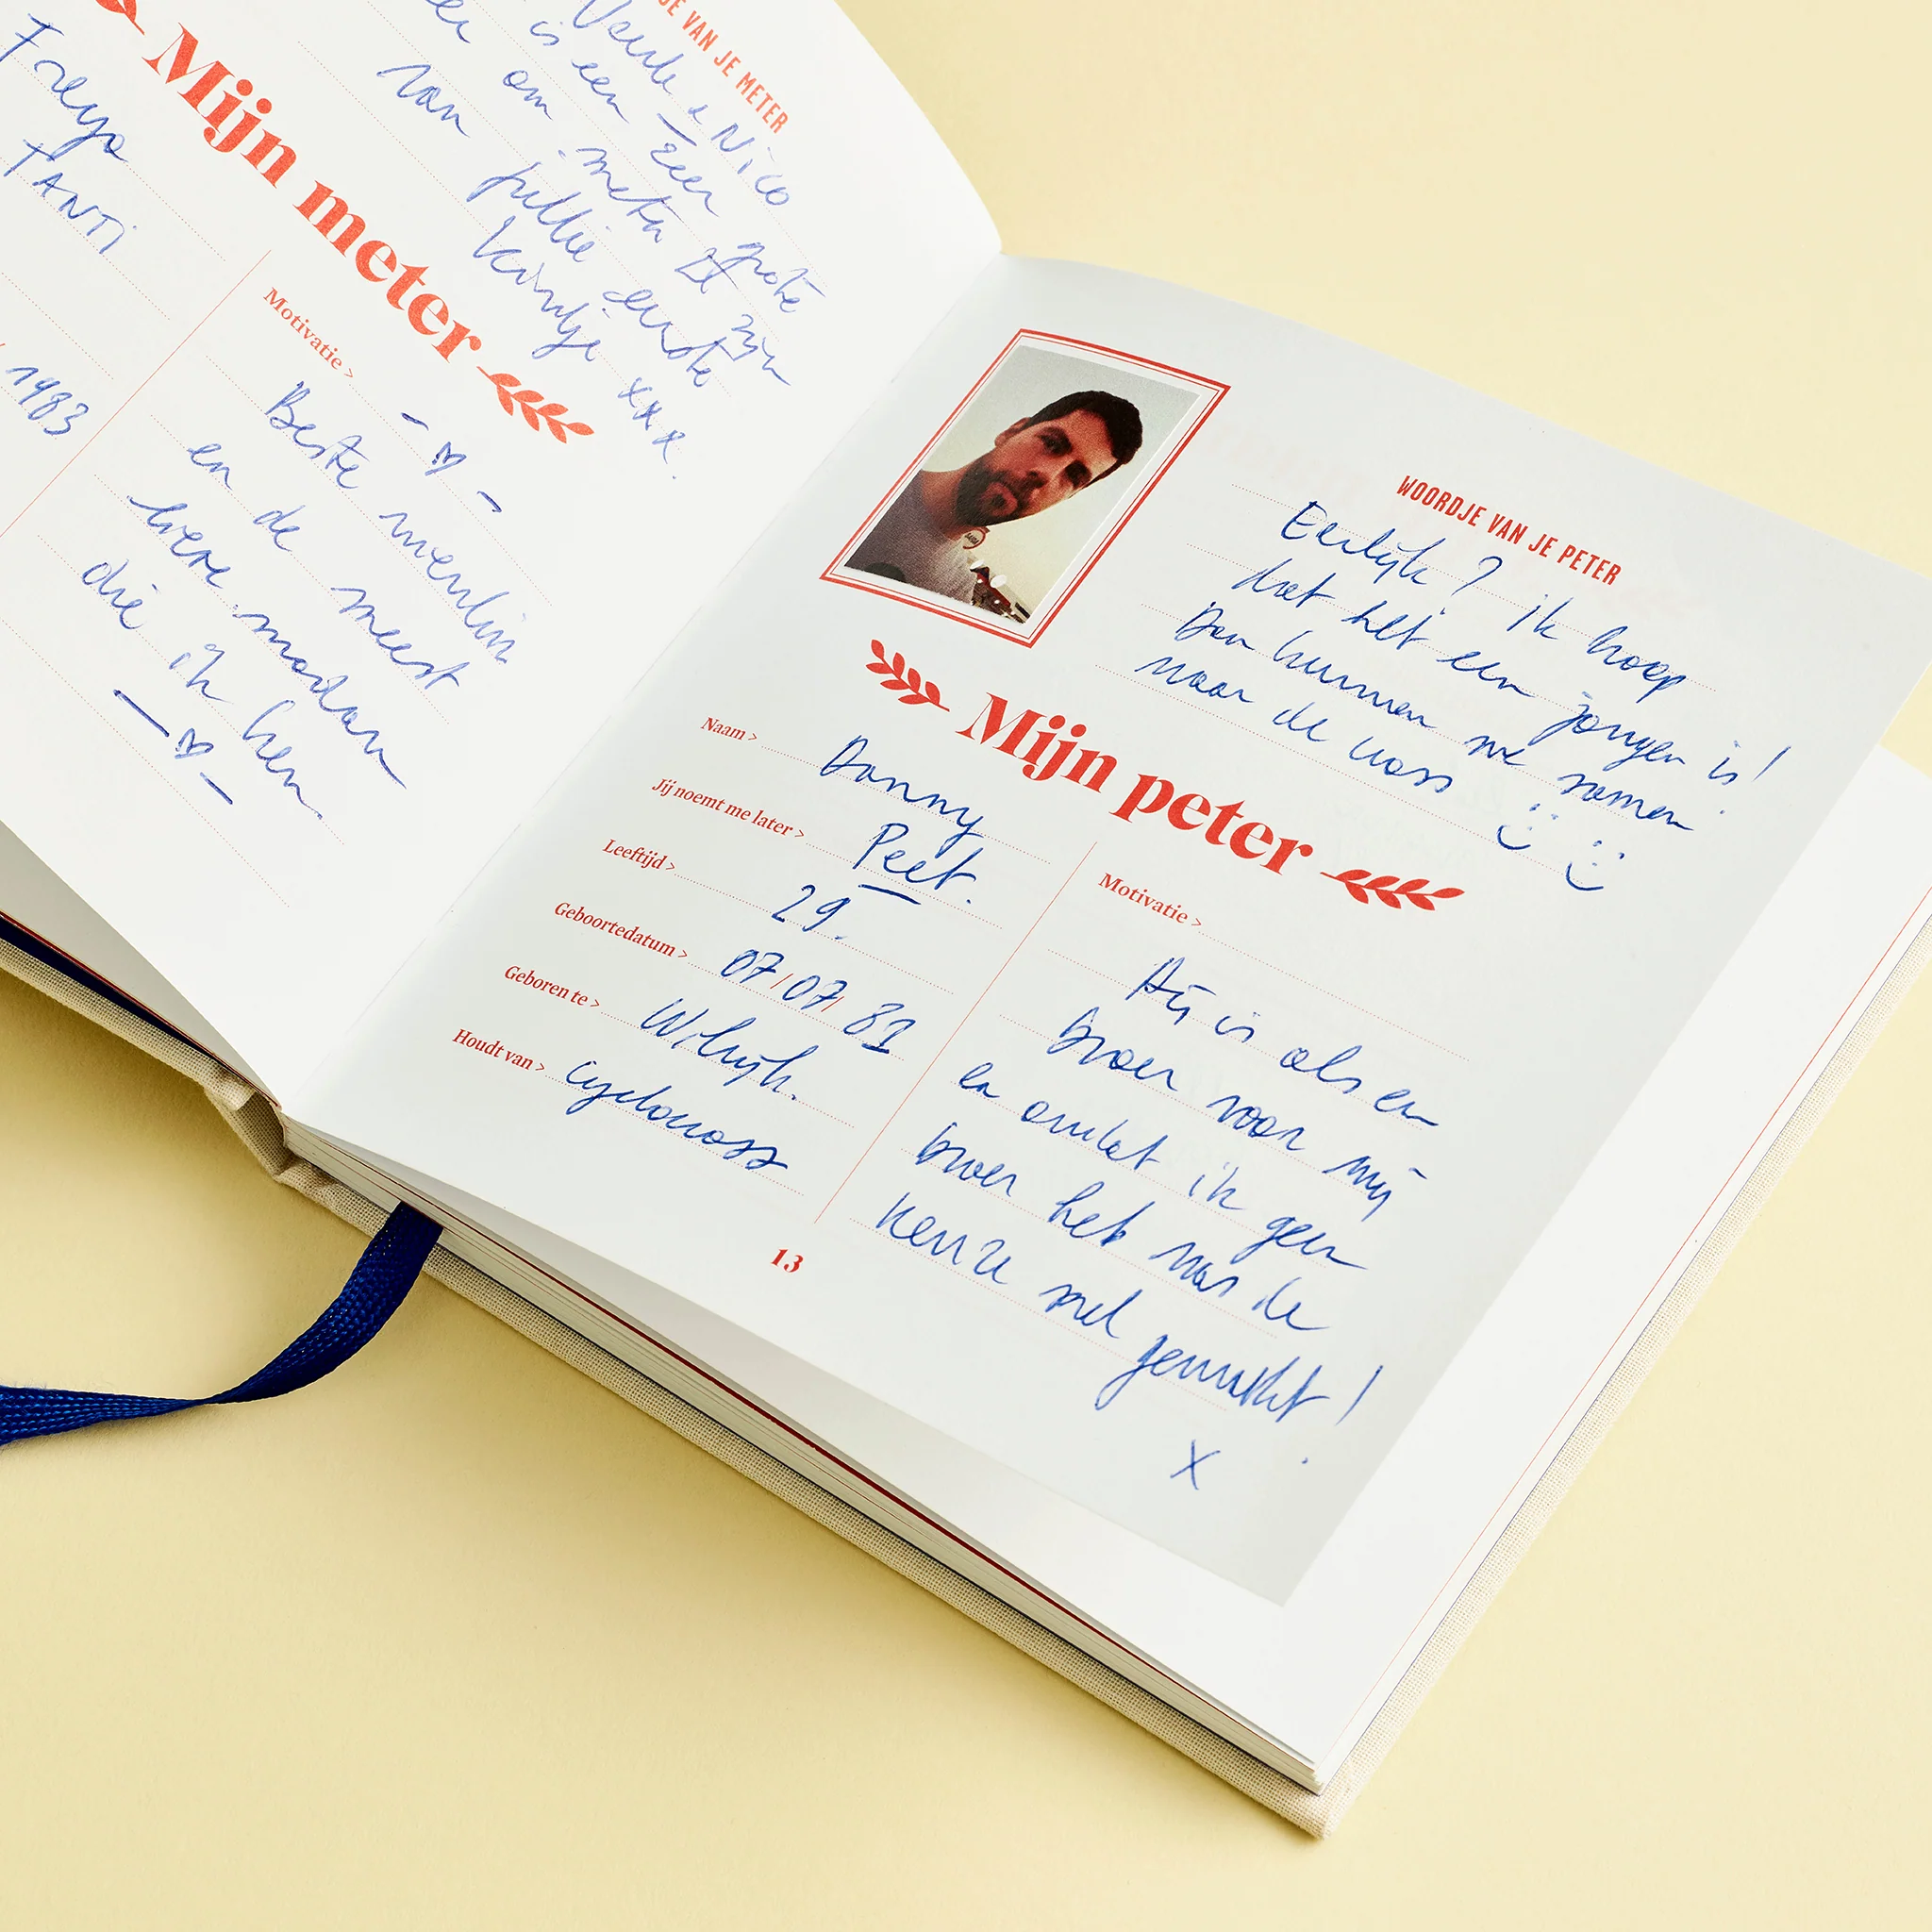 JE VAN JE METER
is een
Nico
Zeer grote
om meter te zijn
van jullie eerste
kindje xxx.
Mijn meter
Freya
TANTI
1983
Motivatie >
Beste vriendin
en de meest
lieve madam
die ik ken.
WOORDJE VAN JE PETER
Eerlijk? ik hoop
dat het een jongen is!
Dan kunnen we samen
naar de cross
Mijn peter
Naam > Danny
Jij noemt me later > Peet.
Leeftijd > 29.
Geboortedatum > 07/07/81
Geboren te > Wilrijk.
Houdt van > cyclocross
Motivatie >
Hij is als en
broer voor mij
en omdat ik geen
broer heb was de
keuze snel gemaakt!
X
13